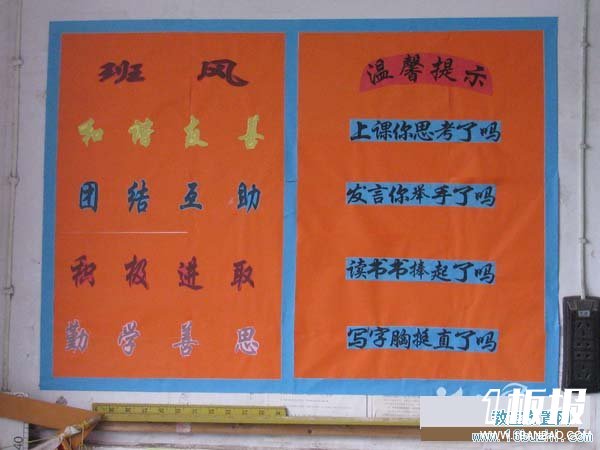 班风
和谐友善
团结互助
积极进取
勤学善思
温馨提示
上课你思考了吗
发言你举手了吗
读书书捧起了吗
写字胸挺直了吗
板报
40